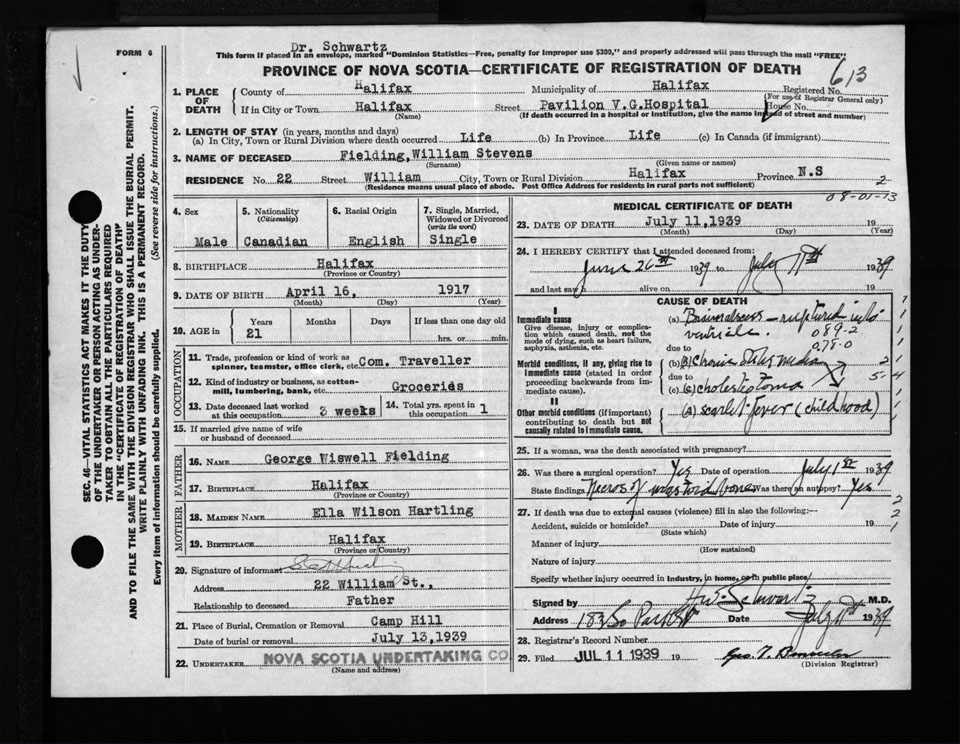 Dr. Schwartz
FORM 6
This form if placed in an envelope, marked "Dominion Statistics—Free, penalty for improper use $300," and properly addressed will pass through the mail "FREE"
PROVINCE OF NOVA SCOTIA—CERTIFICATE OF REGISTRATION OF DEATH
613
1. PLACE OF DEATH
County of Halifax Municipality of Halifax Registered No.
(For use of Registrar General only)
If in City or Town Halifax Street Pavilion V.G.Hospital House No.
(Name) (If death occurred in a hospital or institution, give the name instead of street and number)
2. LENGTH OF STAY (in years, months and days)
(a) In City, Town or Rural Division where death occurred Life (b) In Province Life (c) In Canada (if immigrant)
3. NAME OF DECEASED Fielding,William Stevens
(Surname) (Given name or names)
RESIDENCE No. 22 Street William City, Town or Rural Division Halifax Province N.S
(Residence means usual place of abode. Post Office Address for residents in rural parts not sufficient)
2
08-01-13
4. Sex
Male
5. Nationality
(Citizenship)
Canadian
6. Racial Origin
English
7. Single, Married, Widowed or Divorced
(write the word)
Single
8. BIRTHPLACE Halifax
(Province or Country)
9. DATE OF BIRTH April 16, 1917
(Month) (Day) (Year)
10. AGE in
Years Months Days If less than one day old
21 hrs. or min.
OCCUPATION
11. Trade, profession or kind of work as spinner, teamster, office clerk, etc. Com. Traveller
12. Kind of industry or business, as cotton-mill, lumbering, bank, etc. Groceries
13. Date deceased last worked at this occupation 3 weeks
14. Total yrs. spent in this occupation 1
15. If married give name of wife or husband of deceased
FATHER
16. NAME George Wiswell Fielding
17. BIRTHPLACE Halifax
(Province or Country)
MOTHER
18. MAIDEN NAME Ella Wilson Hartling
19. BIRTHPLACE Halifax
(Province or Country)
20. Signature of informant
Address 22 William St.,
Relationship to deceased Father
21. Place of Burial, Cremation or Removal Camp Hill
Date of burial or removal July 13,1939
22. UNDERTAKER NOVA SCOTIA UNDERTAKING CO
(Name and address)
MEDICAL CERTIFICATE OF DEATH
23. DATE OF DEATH July 11,1939 19
(Month) (Day) (Year)
24. I HEREBY CERTIFY that I attended deceased from:
June 26th 1939 to July 11th 1939
and last saw h alive on 19
CAUSE OF DEATH
I
Immediate cause
Give disease, injury or complication which caused death, not the mode of dying, such as heart failure, asphyxia, asthenia, etc.
(a) Brain abscess – ruptured into
ventricle. 089-2
due to 078-0
Morbid conditions, if any, giving rise to immediate cause (stated in order proceeding backwards from immediate cause).
(b) Chronic Otitis Media
due to
(c) cholesteatoma
5-4
II
Other morbid conditions (if important) contributing to death but not causally related to immediate cause.
(d) scarlet fever (childhood)
25. If a woman, was the death associated with pregnancy?
26. Was there a surgical operation? Yes Date of operation July 1st 1939
State findings Necros of mastoid bone Was there an autopsy? Yes
27. If death was due to external causes (violence) fill in also the following:—
Accident, suicide or homicide? Date of injury 19
(State which)
Manner of injury
(How sustained)
Nature of injury
Specify whether injury occurred in industry, in home, or in public place
Signed by H.W. Schwartz M.D.
Address 183 So Park St Date July 11th 1939
28. Registrar's Record Number
29. Filed JUL 11 1939 19
(Division Registrar)
SEC. 46—VITAL STATISTICS ACT MAKES IT THE DUTY
OF THE UNDERTAKER OR PERSON ACTING AS UNDER-
TAKER TO OBTAIN ALL THE PARTICULARS REQUIRED
IN THE "CERTIFICATE OF REGISTRATION OF DEATH"
AND TO FILE THE SAME WITH THE DIVISION REGISTRAR WHO SHALL ISSUE THE BURIAL PERMIT.
WRITE PLAINLY WITH UNFADING INK. THIS IS A PERMANENT RECORD.
Every item of information should be carefully supplied. (See reverse side for instructions.)